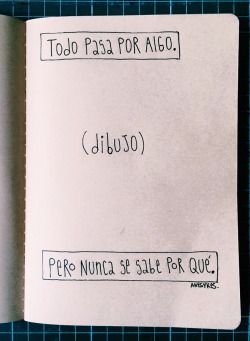 Todo pasa por algo.
(dibujo)
Pero nunca se sabe por qué.